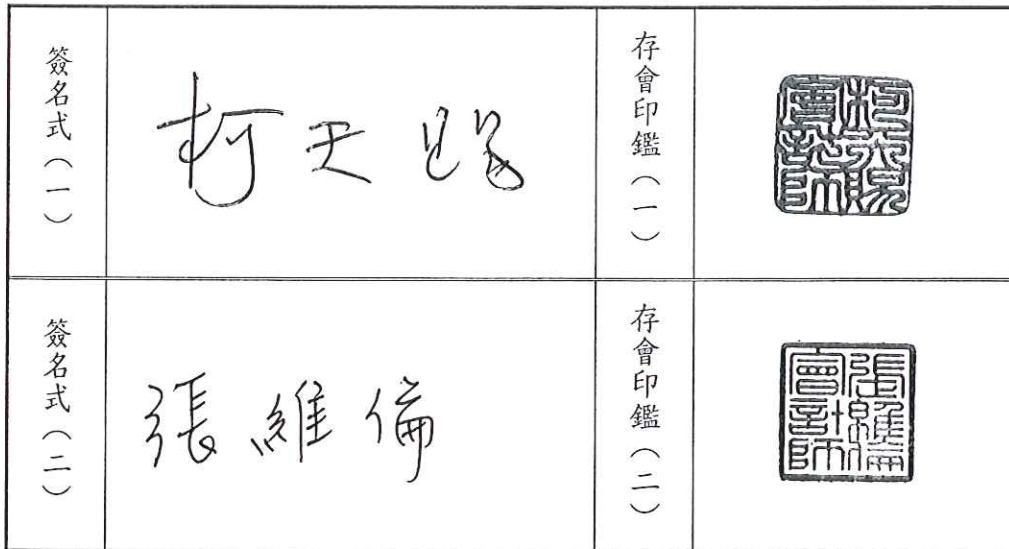 簽名式(一)
柯天賜
存會印鑑(一)
柯天賜會計師
簽名式(二)
張維倫
存會印鑑(二)
張維倫會計師